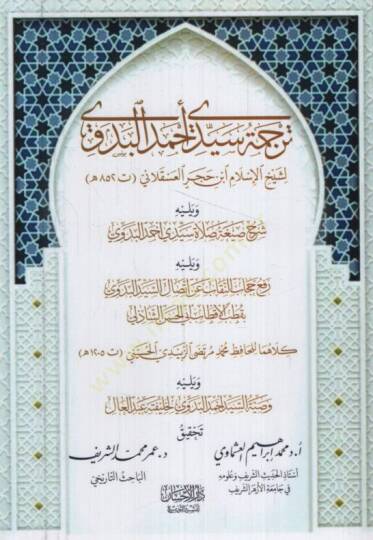 ترجمة سيدي أحمد البدوي
لشيخ الإسلام ابن حجر العسقلاني (ت ٨٥٢ هـ)
ويليه
شرح صيغة صلاة سيدي أحمد البدوي
ويليه
رفع حجاب النقاب عن اتصال السيد البدوي
بقطب الأقطاب أبي الحسن الشاذلي
كلاهما للحافظ محمد مرتضى الزبيدي الحسيني (ت ١٢٠٥ هـ)
ويليه
وصية السيد أحمد البدوي لخليفته عبد العال
تحقيق
أ.د محمد إبراهيم العشماوي
د. عمر محمد الشريف
أستاذ الحديث الشريف وعلومه
في جامعة الأزهر الشريف
الباحث التاريخي
دار الإحسان
للنشر والتوزيع